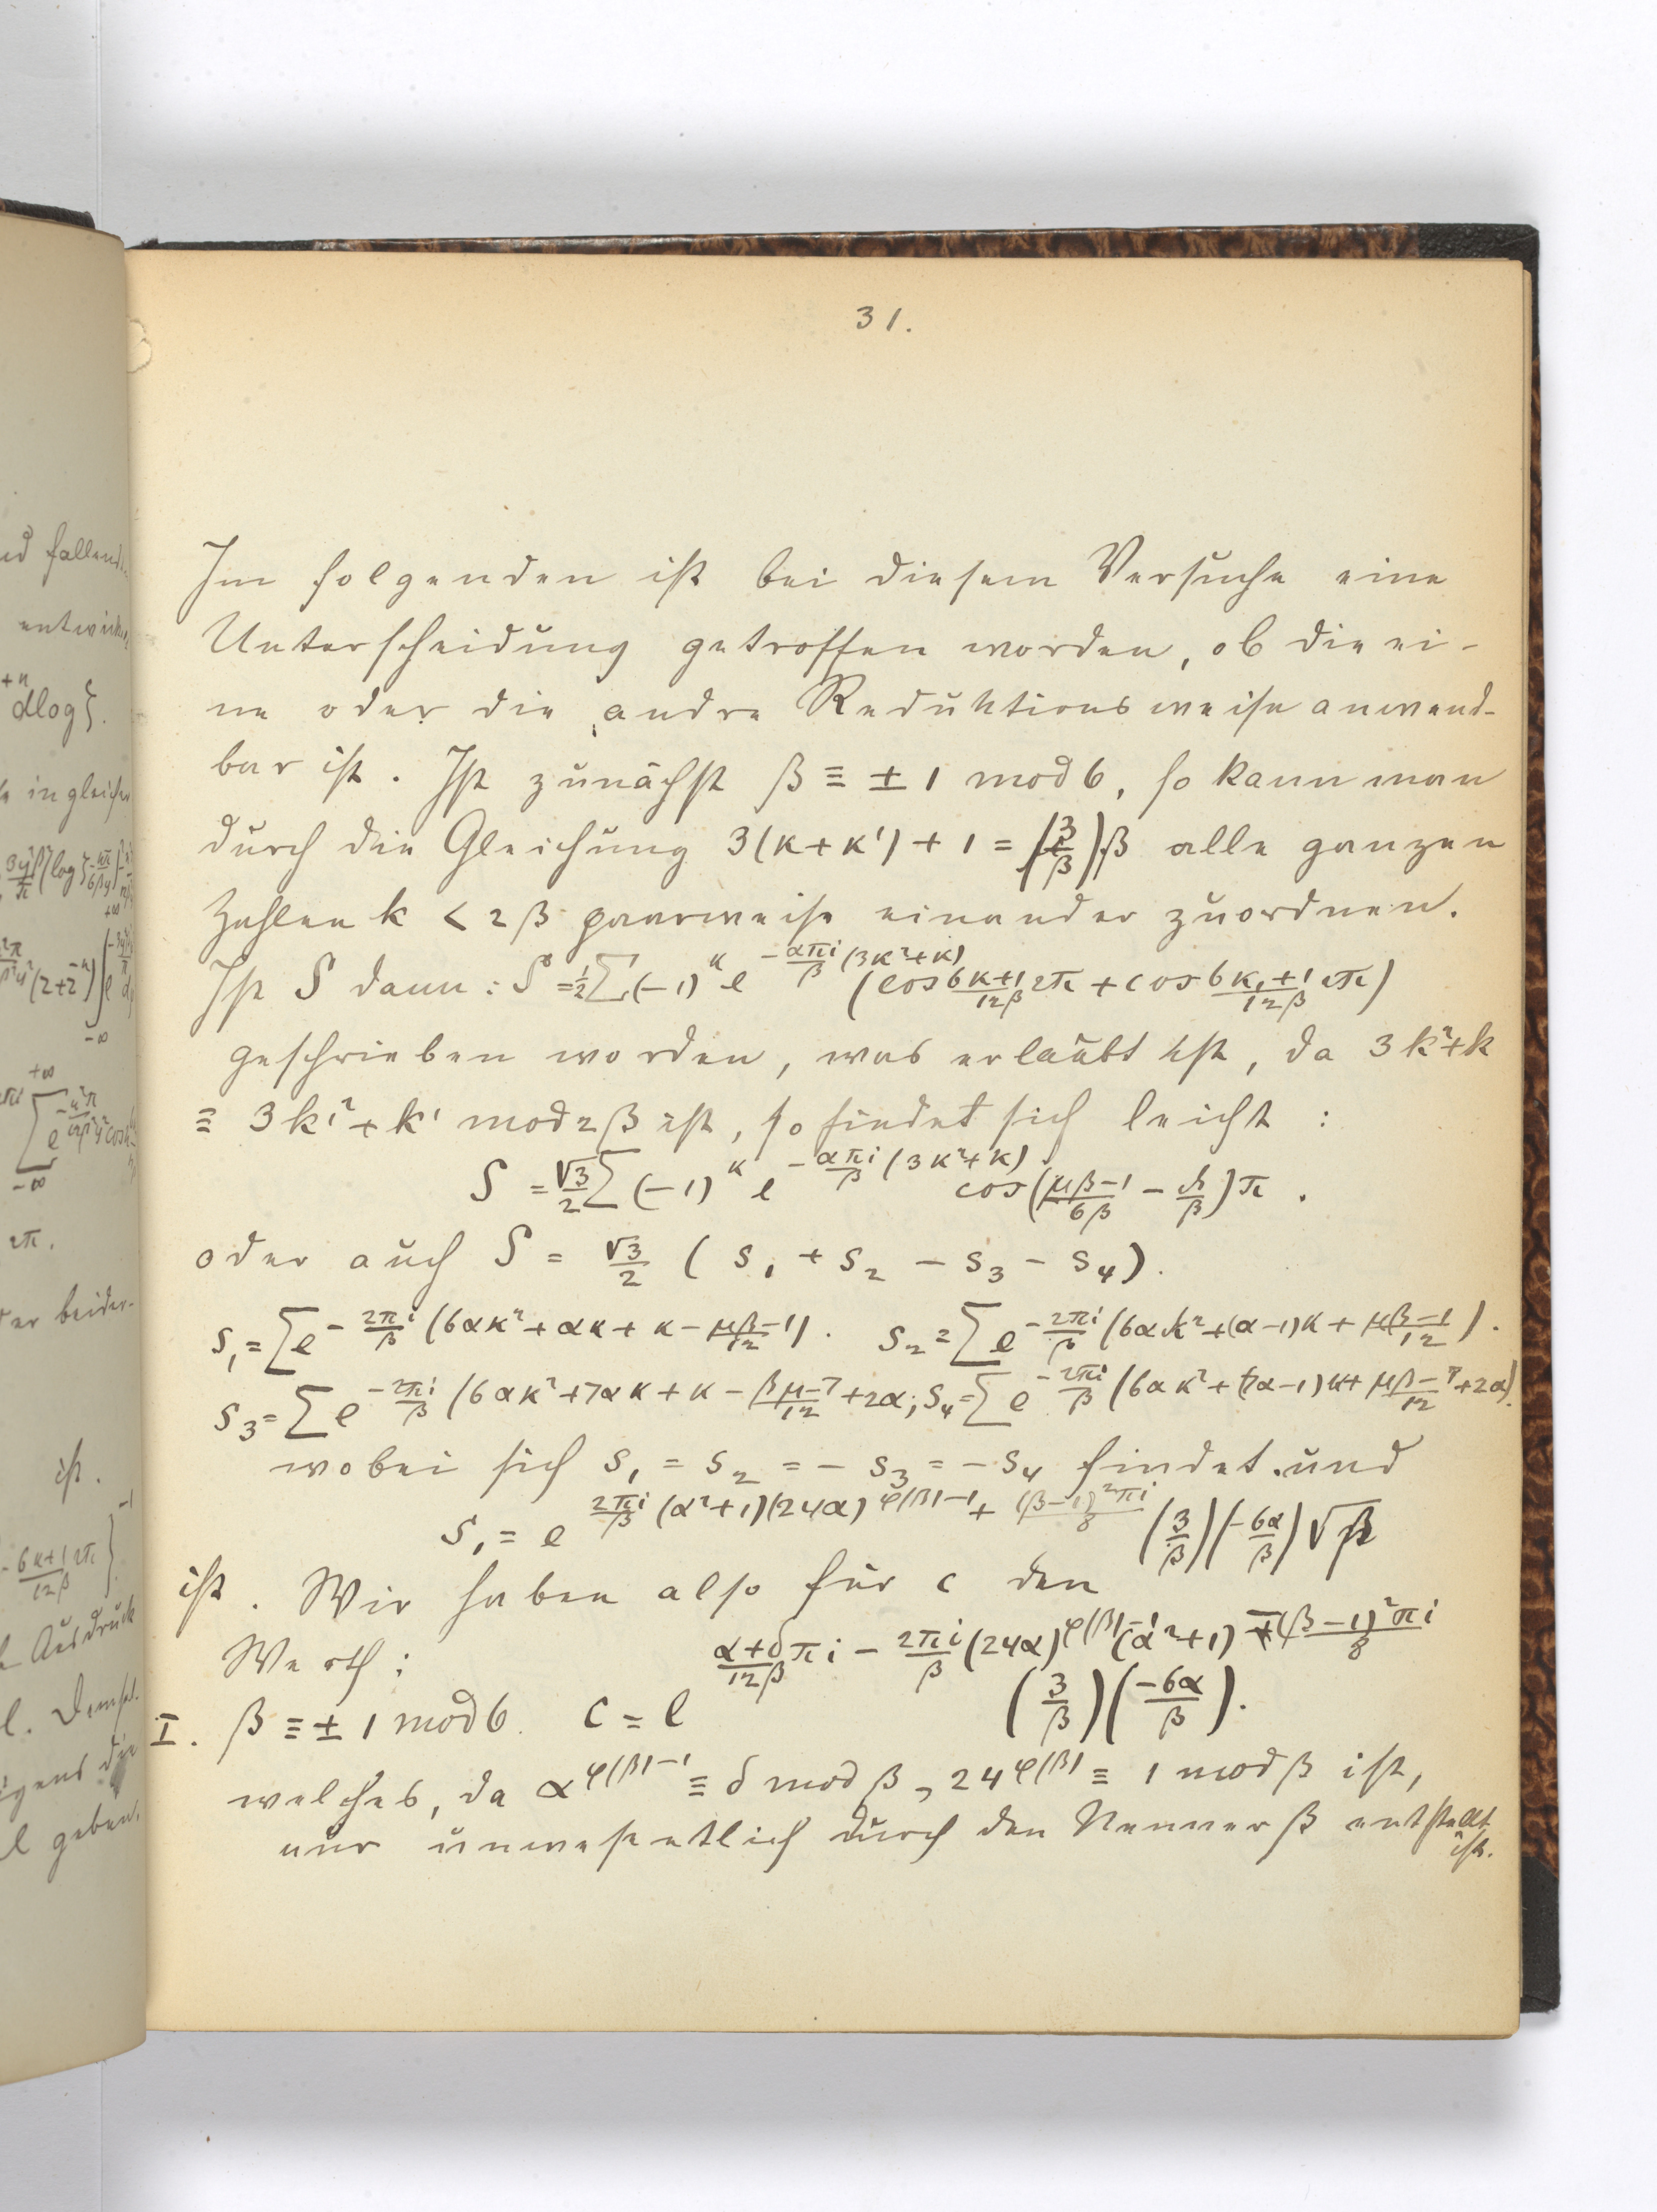 31.
Im folgenden ist bei diesem Versuche eine
Unterscheidung getroffen worden, ob die ei-
ne oder die andre Reduktionsweise anwend-
bar ist. Ist zunächst β ≡ ± 1 mod 6, so kann man
durch die Gleichung 3(κ+κ')+1 = (3/β)β alle ganzen
Zahlen k < 2β paarweise einander zuordnen.
Ist S dann: S = 1/2 Σ (-1)^κ e^{-απi/β (3κ²+κ)} (cos (6κ+1)/(12β) 2π + cos (6κ₁+1)/(12β) 2π)
geschrieben worden, was erlaubt ist, da 3k²+k
≡ 3k'²+k' mod 2β ist, so findet sich leicht :
S = √3/2 Σ (-1)^κ e^{-απi/β (3κ²+κ)} cos((μβ-1)/(6β) - k/β)π .
oder auch S = √3/2 (s₁ + s₂ - s₃ - s₄).
s₁ = Σ e^{-2πi/β (6ακ² + ακ + κ - (μβ-1)/12)} . s₂ = Σ e^{-2πi/β (6ακ² + (α-1)κ + (μβ-1)/12)} .
s₃ = Σ e^{-2πi/β (6ακ² + 7ακ + κ - (βμ-7)/12 + 2α}; s₄ = Σ e^{-2πi/β (6ακ² + (7α-1)κ + (μβ-7)/12 + 2α)}.
wobei sich s₁ = s₂ = - s₃ = - s₄ findet. und
s₁ = e^{2πi/β (α²+1)(24α)^{φ(β)-1} + (β-1)²πi/8} (3/β)(-6α/β)√β
ist. Wir haben also für c den
Werth:
I. β ≡ ± 1 mod 6. C = e^{(α+δ)/(12β) πi - 2πi/β (24α)^{φ(β)-1} (α²+1) ∓ (β-1)²πi/8} (3/β)(-6α/β).
welches, da α^{φ(β)-1} ≡ δ mod β, 24^{φ(β)} ≡ 1 mod β ist,
nur unwesentlich durch den Nenner β entstellt
ist.